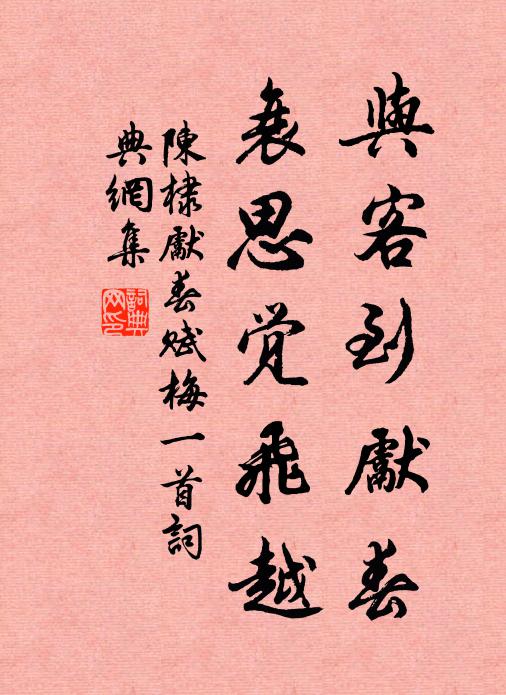 與客到獻春
衰思覚飛越
陳棣獻春賦梅一首詞
典網集
詞典
网印